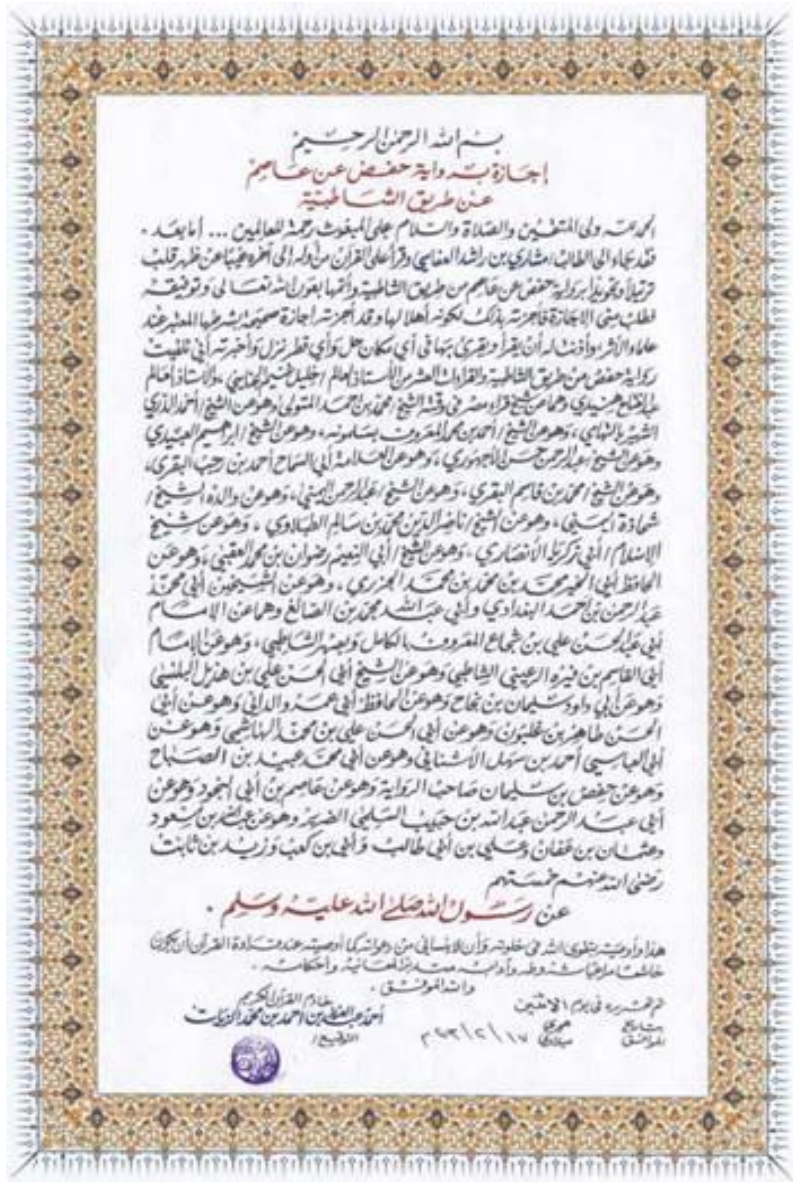 بسم الله الرحمن الرحيم
إجازة برواية حفص عن عاصم
عن طريق الشاطبية
الحمد لله ولي المتقين والصلاة والسلام على المبعوث رحمة للعالمين ... أما بعد .
فقد جاء إلي الطالب/ مشاري بن راشد العفاسي وقرأ علي القرآن من أوله إلى آخره غيبا عن ظهر قلب
ترتيلا وتجويدا برواية حفص عن عاصم من طريق الشاطبية وأتمها بعون الله تعالى وتوفيقه
فطلب مني الإجازة فأجزته بذلك لكونه أهلا لها وقد أجزته إجازة صحيحة بشرطها المعتبر عند
علماء الأثر وأذنت له أن يقرأ ويقرئ بها في أي مكان حل وأي قطر نزل وأخبرته أني تلقيت
رواية حفص من طريق الشاطبية والقراءات العشر من الأستاذ الهمام / خليل غنيم الجنايني ، والأستاذ الهمام
عبد الفتاح هنيدي وهما عن شيخ قراء مصر في وقته الشيخ / محمد بن أحمد المتولي وهو عن الشيخ / أحمد الدري
الشهير بالتهامي ، وهو عن الشيخ / أحمد بن محمد المعروف بسلمونه ، وهو عن الشيخ / ابراهيم العبيدي
وهو عن الشيخ / عبد الرحمن بن حسن الأجهوري ، وهو عن العلامة أبي السماح أحمد بن رجب البقري ،
وهو عن الشيخ / محمد بن قاسم البقري ، وهو عن الشيخ / عبد الرحمن اليمني ، وهو عن والده الشيخ /
شحاذة اليمني ، وهو عن الشيخ / ناصر الدين محمد بن سالم الطبلاوي ، وهو عن شيخ
الإسلام / أبي زكريا الأنصاري ، وهو عن الشيخ / أبي النعيم رضوان بن محمد العقبي ، وهو عن
الحافظ أبي الخير محمد بن محمد بن محمد الجزري ، وهو عن الشيخين أبي محمد
عبد الرحمن بن أحمد البغدادي وأبي عبد الله محمد بن الصائغ وهما عن الإمام
أبي عبد الحسن علي بن شجاع المعروف بالكامل وبصهر الشاطبي ، وهو عن الإمام
أبي القاسم بن فيره الرعيني الشاطبي وهو عن الشيخ أبي الحسن علي بن هذيل البلنسي
وهو عن أبي داود سليمان بن نجاح وهو عن الحافظ أبي عمرو الداني وهو عن أبي
الحسن طاهر بن غلبون وهو عن أبي الحسن علي بن محمد الهاشمي وهو عن
أبي العباس أحمد بن سهل الأشناني وهو عن أبي محمد عبيد بن الصباح
وهو عن حفص بن سليمان صاحب الرواية وهو عن عاصم بن أبي النجود وهو عن
أبي عبد الرحمن عبد الله بن حبيب السلمي الضرير وهو عن عبد الله بن مسعود
وعثمان بن عفان وعلي بن أبي طالب وأبي بن كعب وزيد بن ثابت
رضي الله عنهم خمستهم
عن رسول الله صلى الله عليه وسلم .
هذا وأوصيه بتقوى الله في خلوته وأن لا ينساني من دعواته كما أوصيه عند قراءة القرآن أن يكون
خاشعا متدبرا لمعانيه وأحكامه .
والله الموفق .
تم تحريره في يوم الاثنين
بتاريخ هجري
الموافق ميلادي
خادم القرآن الكريم
أحمد عبد العزيز بن أحمد بن محمد الزيات
التوقيع /